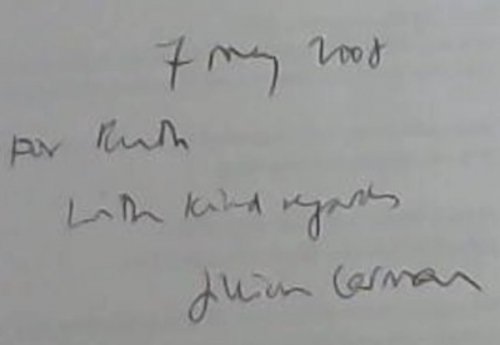 7 May 2008
For Ruth
With kind regards
Jillian Carman